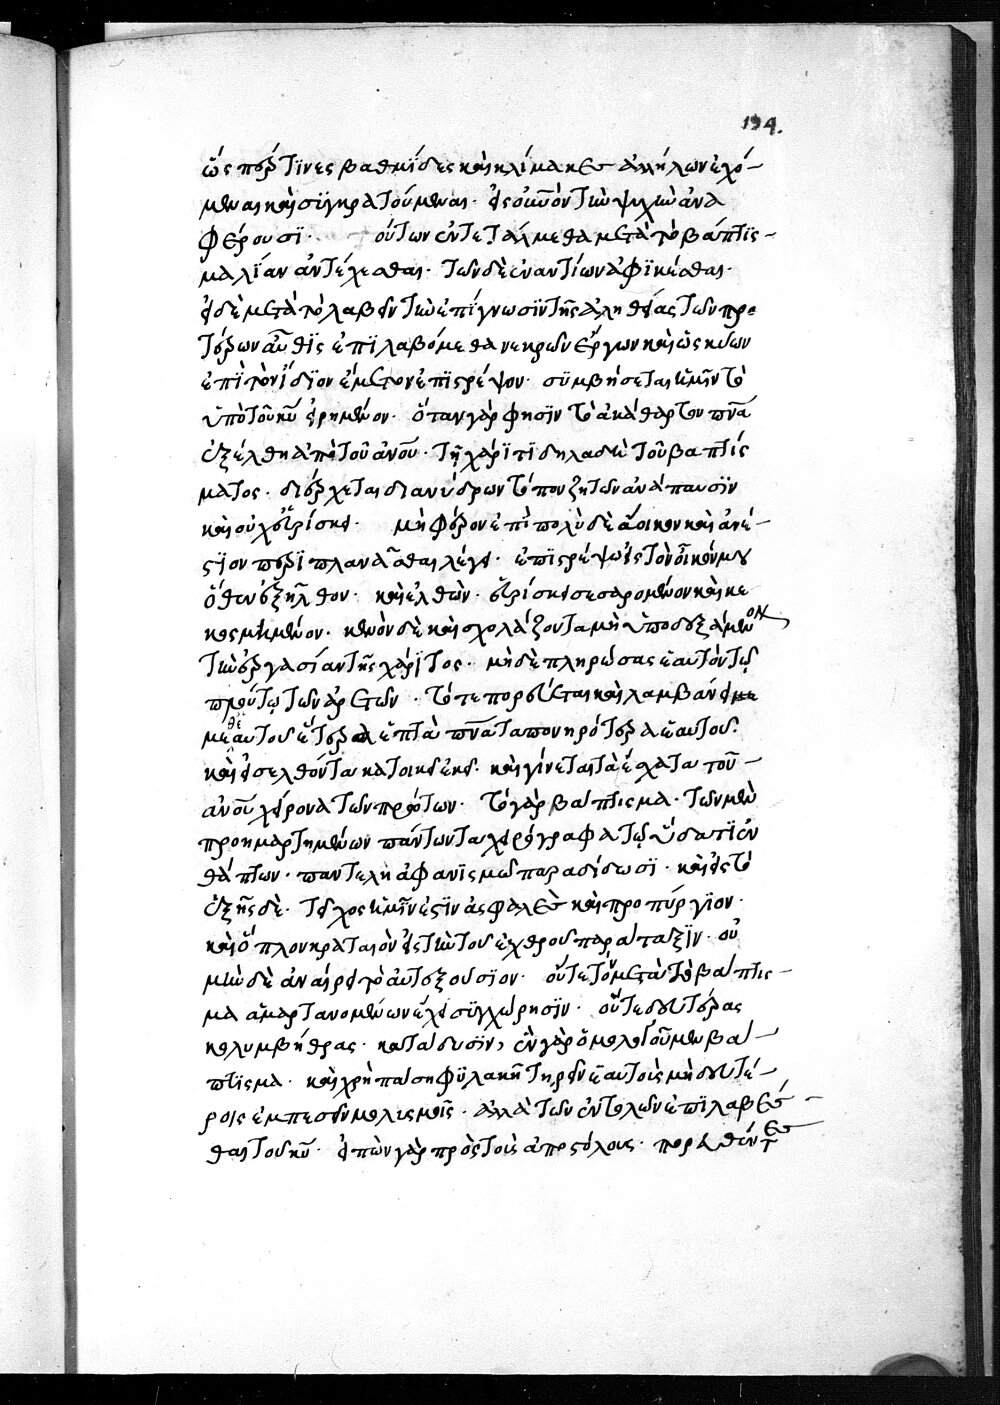 194.
ὥς περ τϊνες βαθμΐδες καὶ κλίμακες ἀλλήλων ἐχό-
μεναι καὶ συγκρατούμεναι. εἰς οὐνὸν τὴν ψυχὴν ἀνα
φέρουσϊ. οὕτων ἐντεταλμεθα μετὰ τὸ βάπτϊς-
μα λΐαν ἀντέχεσθαι. τῶν δὲ ἐναντίων ἀφϊκέσθαι.
εἰ δὲ μετὰ τὸ λαβεῖν τὴν ἐπίγνωσϊν τῆς ἀληθείας τῶν προ
τέρων αὖθϊς ἐπϊλαβόμεθα νεκρῶν ἔργων καὶ ὡς κύων
ἐπὶ τὸν ἴδϊον ἔμετον ἐπϊςρέψον. συμβήσεται ἡμῖν τὸ
ὑπὸ τοῦ κυ εἰρημένον. ὅταν γάρ φησϊν τὸ ἀκάθαρτον πνα
ἐξέλθη ἀπὸ τοῦ ἀνου. τῆ χάρϊτϊ δηλαδὴ τοῦ βαπτίς
ματος. διέρχεται δι ἀνύδρων τόπων ζητῶν ἀνάπαυσϊν
καὶ οὐχ εὑρίσκει. μὴ φέρον ἐπὶ πολὺ δὲ ἄοικον καὶ ἀνέ-
ςϊον περϊπλανᾶσθαι λέγει. ἐπϊςρέψω εἰς τὸν οἶκόν μου
ὅθεν ἐξῆλθον. καὶ ἐλθὼν. εὑρίσκει σεσαρομένον καὶ κε
κοςμημένον. κενὸν δὲ καὶ σχολάζοντα μὴ ὑποδεξάμενον
τὴν ἐργασίαν τῆς χάρϊτος. μὴδὲ πληρώσας ἑαυτὸν τῷ
πλούτῳ τῶν ἀρετῶν. τότε πορεύεται καὶ λαμβάνει
μεθἑαυτοῦ ἕτερα ἑπτὰ πνατα πονηρότερα ἑαυτοῦ.
καὶ εἰσελθόντα κατοικεῖ ἐκεῖ. καὶ γίνεται τὰ ἔσχατα τοῦ-
ἀνου χείρονα τῶν πρώτων. τὸ γὰρ βάπτισμα. τῶν μὲν
προημαρτημένων πάντων τὰ χειρόγραφα τῷ ὕδατϊ ἐν
θάπτων. παντελῆ ἀφανϊσμῶ παραδίδωσϊ. καὶ εἰς τὸ
ἑξῆς δὲ. τεῖχος ἡμῖν ἐςϊν ἀςφαλὲς καὶ προπύργϊον.
καὶ ὅπλον κραταιὸν εἰς τὴν τοῦ ἐχθροῦ παράταξϊν. οὐ
μὴν δὲ ἀναιρεῖ τὸ αὐτεξούσϊον. οὔτε τὸν μετὰ τὸ βάπτις-
μα ἁμαρτανομένων ἔχει συγχώρησϊν. οὔτε δευτέρας
κολυμβήθρας. κατάδυσϊν, ἓν γὰρ ὁμολογοῦμεν βά-
πτϊσμα. καὶ χρὴ πάση φϋλακῆ τηρεῖν ἑαυτοὺς μὴ δευτέ-
ροις ἐμπεσεῖν μολυσμοῖς. ἀλλὰ τῶν ἐντολῶν ἐπϊλαβέσ-
θαι τοῦ κυ. εἰπὼν γὰρ πρὸς τοὺς ἀποςόλους. πορευθέντες